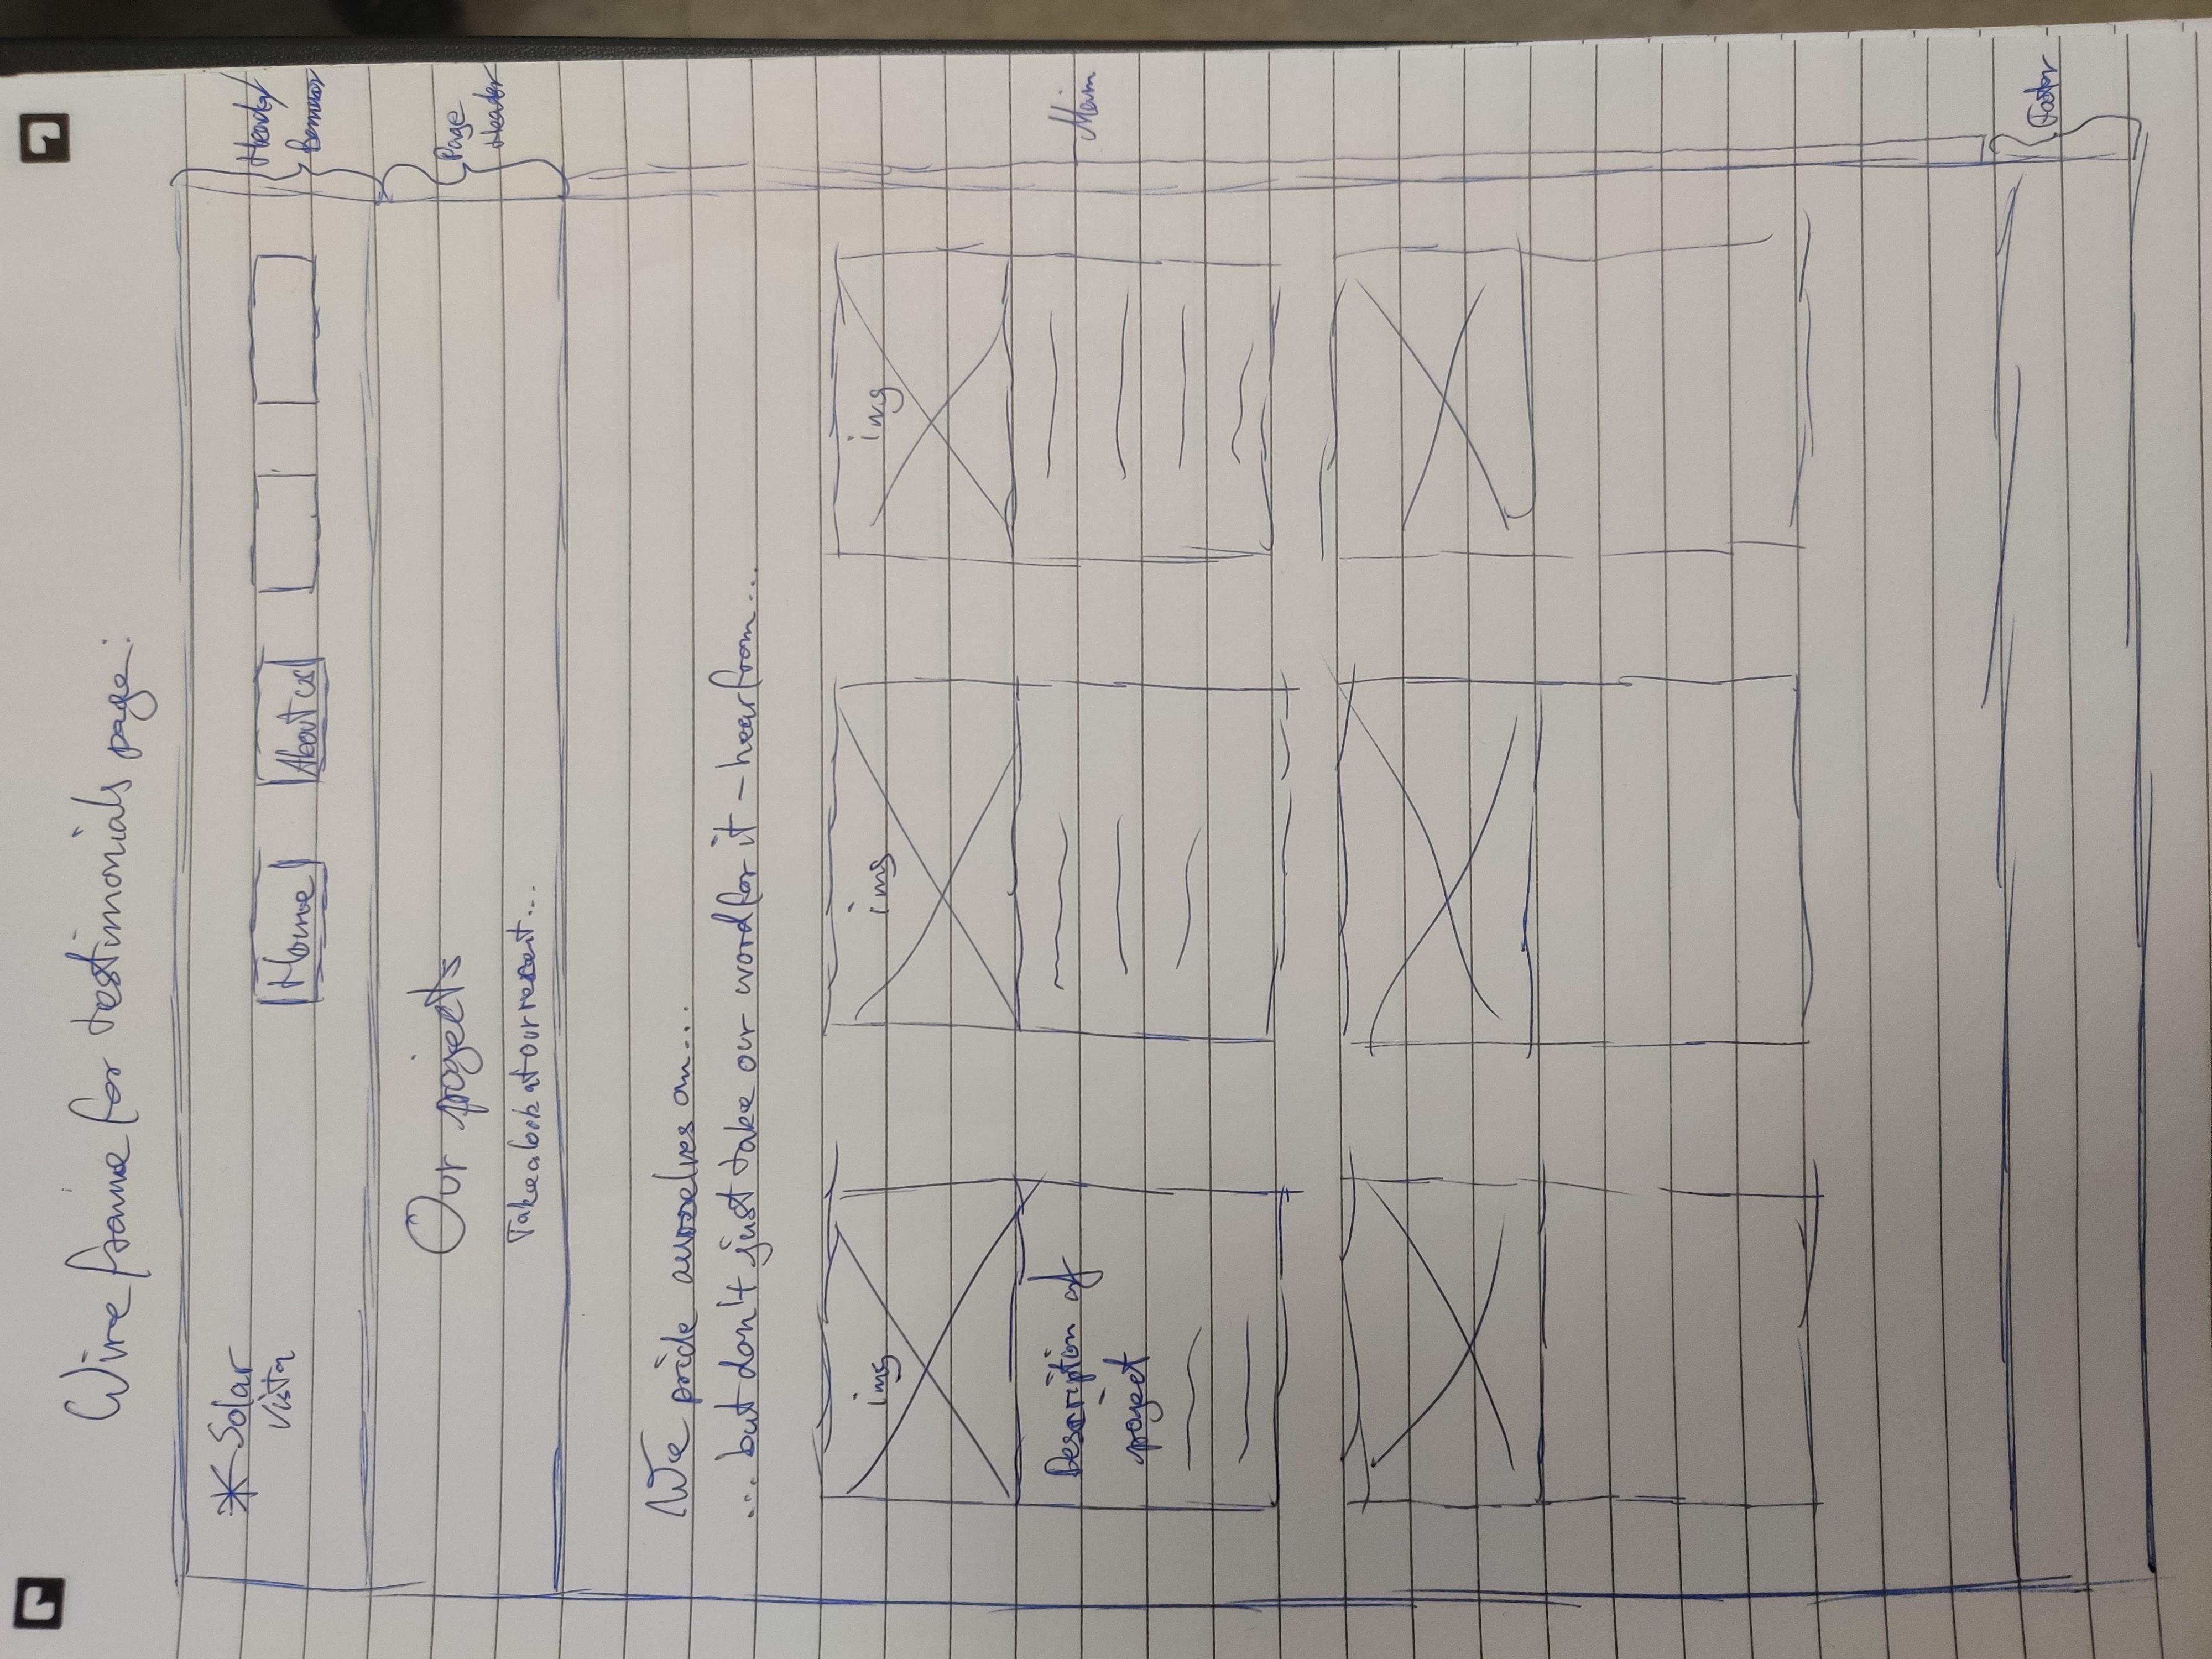 Wireframe for testimonials page:
Solar
Vista
Home
About us
Header/
Banner
Our projects
Take a look at our recent...
Page
Header
We pride ourselves on...
... but don't just take our word for it - hear from...
img
img
img
Description of
project
Main
Footer